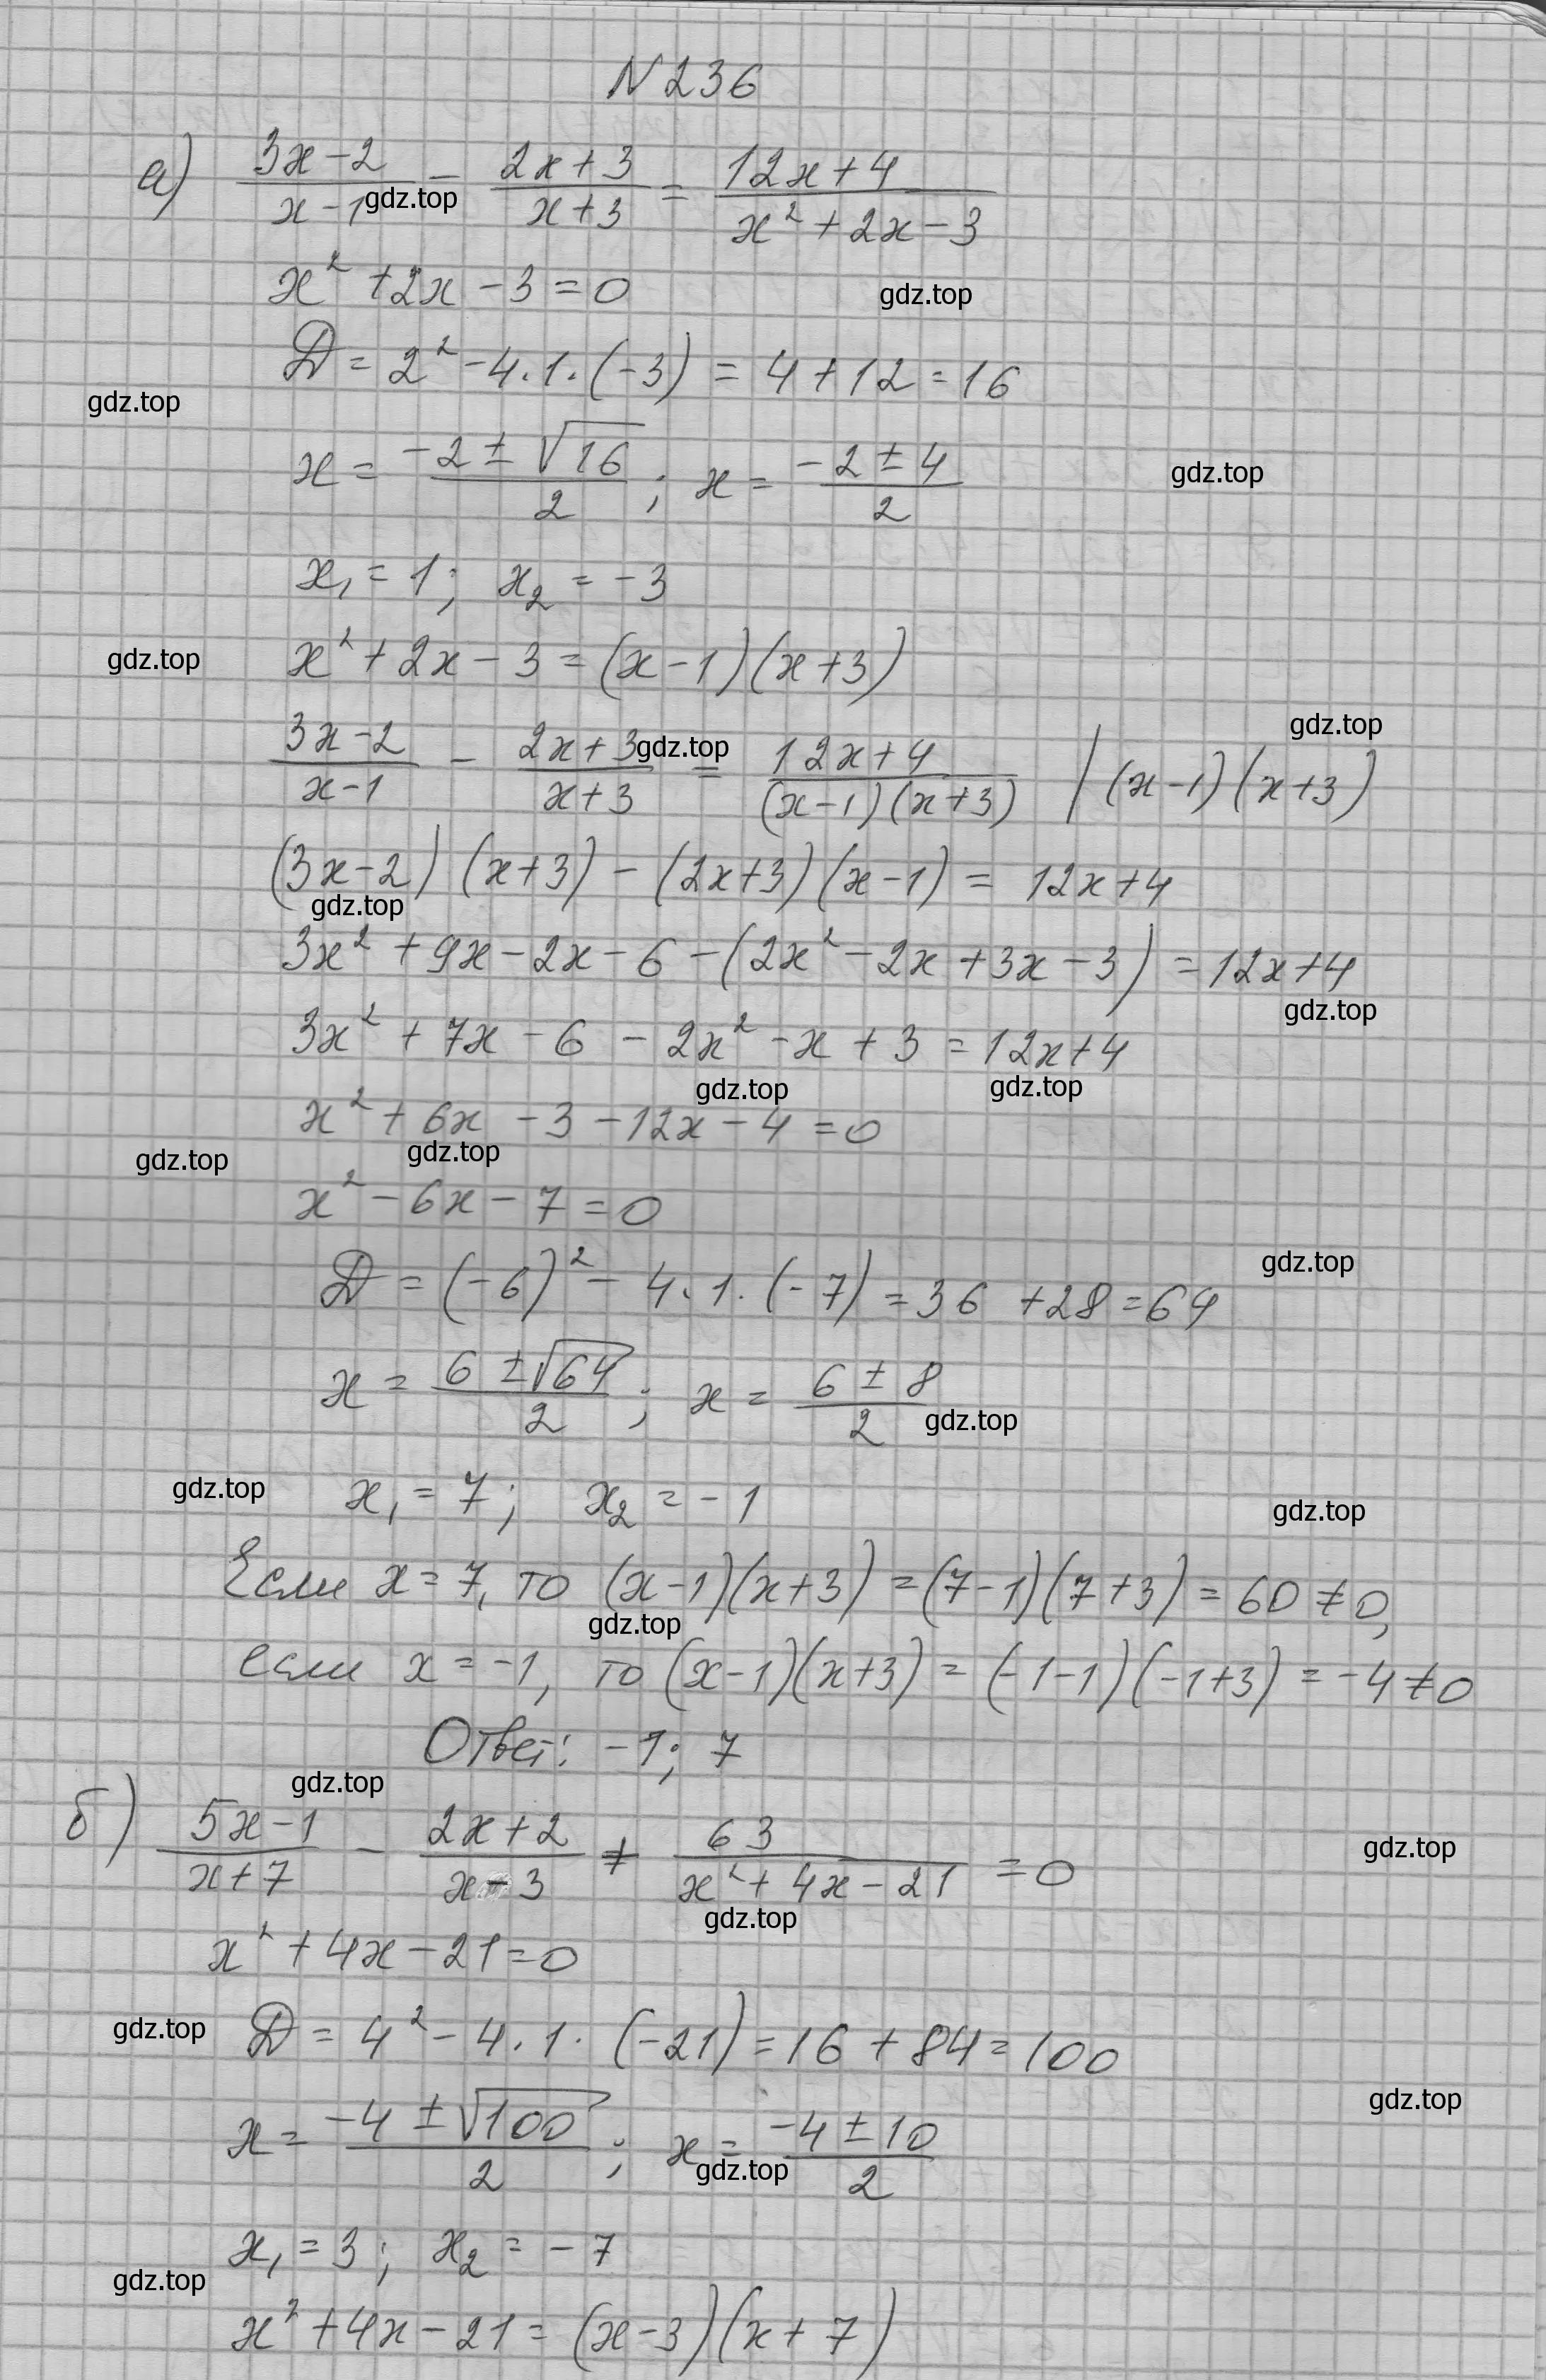 N 236
а) (3x-2)/(x-1) - (2x+3)/(x+3) = (12x+4)/(x²+2x-3)
gdz.top
x²+2x-3=0
gdz.top
D = 2²-4·1·(-3) = 4+12=16
gdz.top
x = (-2±√16)/2; x = (-2±4)/2
gdz.top
x₁ = 1; x₂ = -3
x²+2x-3=(x-1)(x+3)
gdz.top
gdz.top
(3x-2)/(x-1) - (2x+3)/(x+3) = (12x+4)/((x-1)(x+3)) | (x-1)(x+3)
gdz.top
(3x-2)(x+3)-(2x+3)(x-1) = 12x+4
gdz.top
3x²+9x-2x-6-(2x²-2x+3x-3)=12x+4
gdz.top
3x²+7x-6-2x²-x+3=12x+4
gdz.top gdz.top
x²+6x-3-12x-4=0
gdz.top gdz.top
x²-6x-7=0
gdz.top
D = (-6)²-4·1·(-7)=36+28=64
x = (6±√64)/2; x = (6±8)/2
gdz.top
gdz.top
x₁ = 7; x₂ = -1
gdz.top
Если x=7, то (x-1)(x+3)=(7-1)(7+3)=60≠0,
gdz.top
если x=-1, то (x-1)(x+3)=(-1-1)(-1+3)=-4≠0
Ответ: -1; 7
gdz.top
б) (5x-1)/(x+7) - (2x+2)/(x-3) + 63/(x²+4x-21) = 0
gdz.top
gdz.top
x²+4x-21=0
gdz.top
D = 4²-4·1·(-21)=16+84=100
gdz.top
x = (-4±√100)/2; x = (-4±10)/2
gdz.top
x₁ = 3; x₂ = -7
gdz.top
x²+4x-21=(x-3)(x+7)